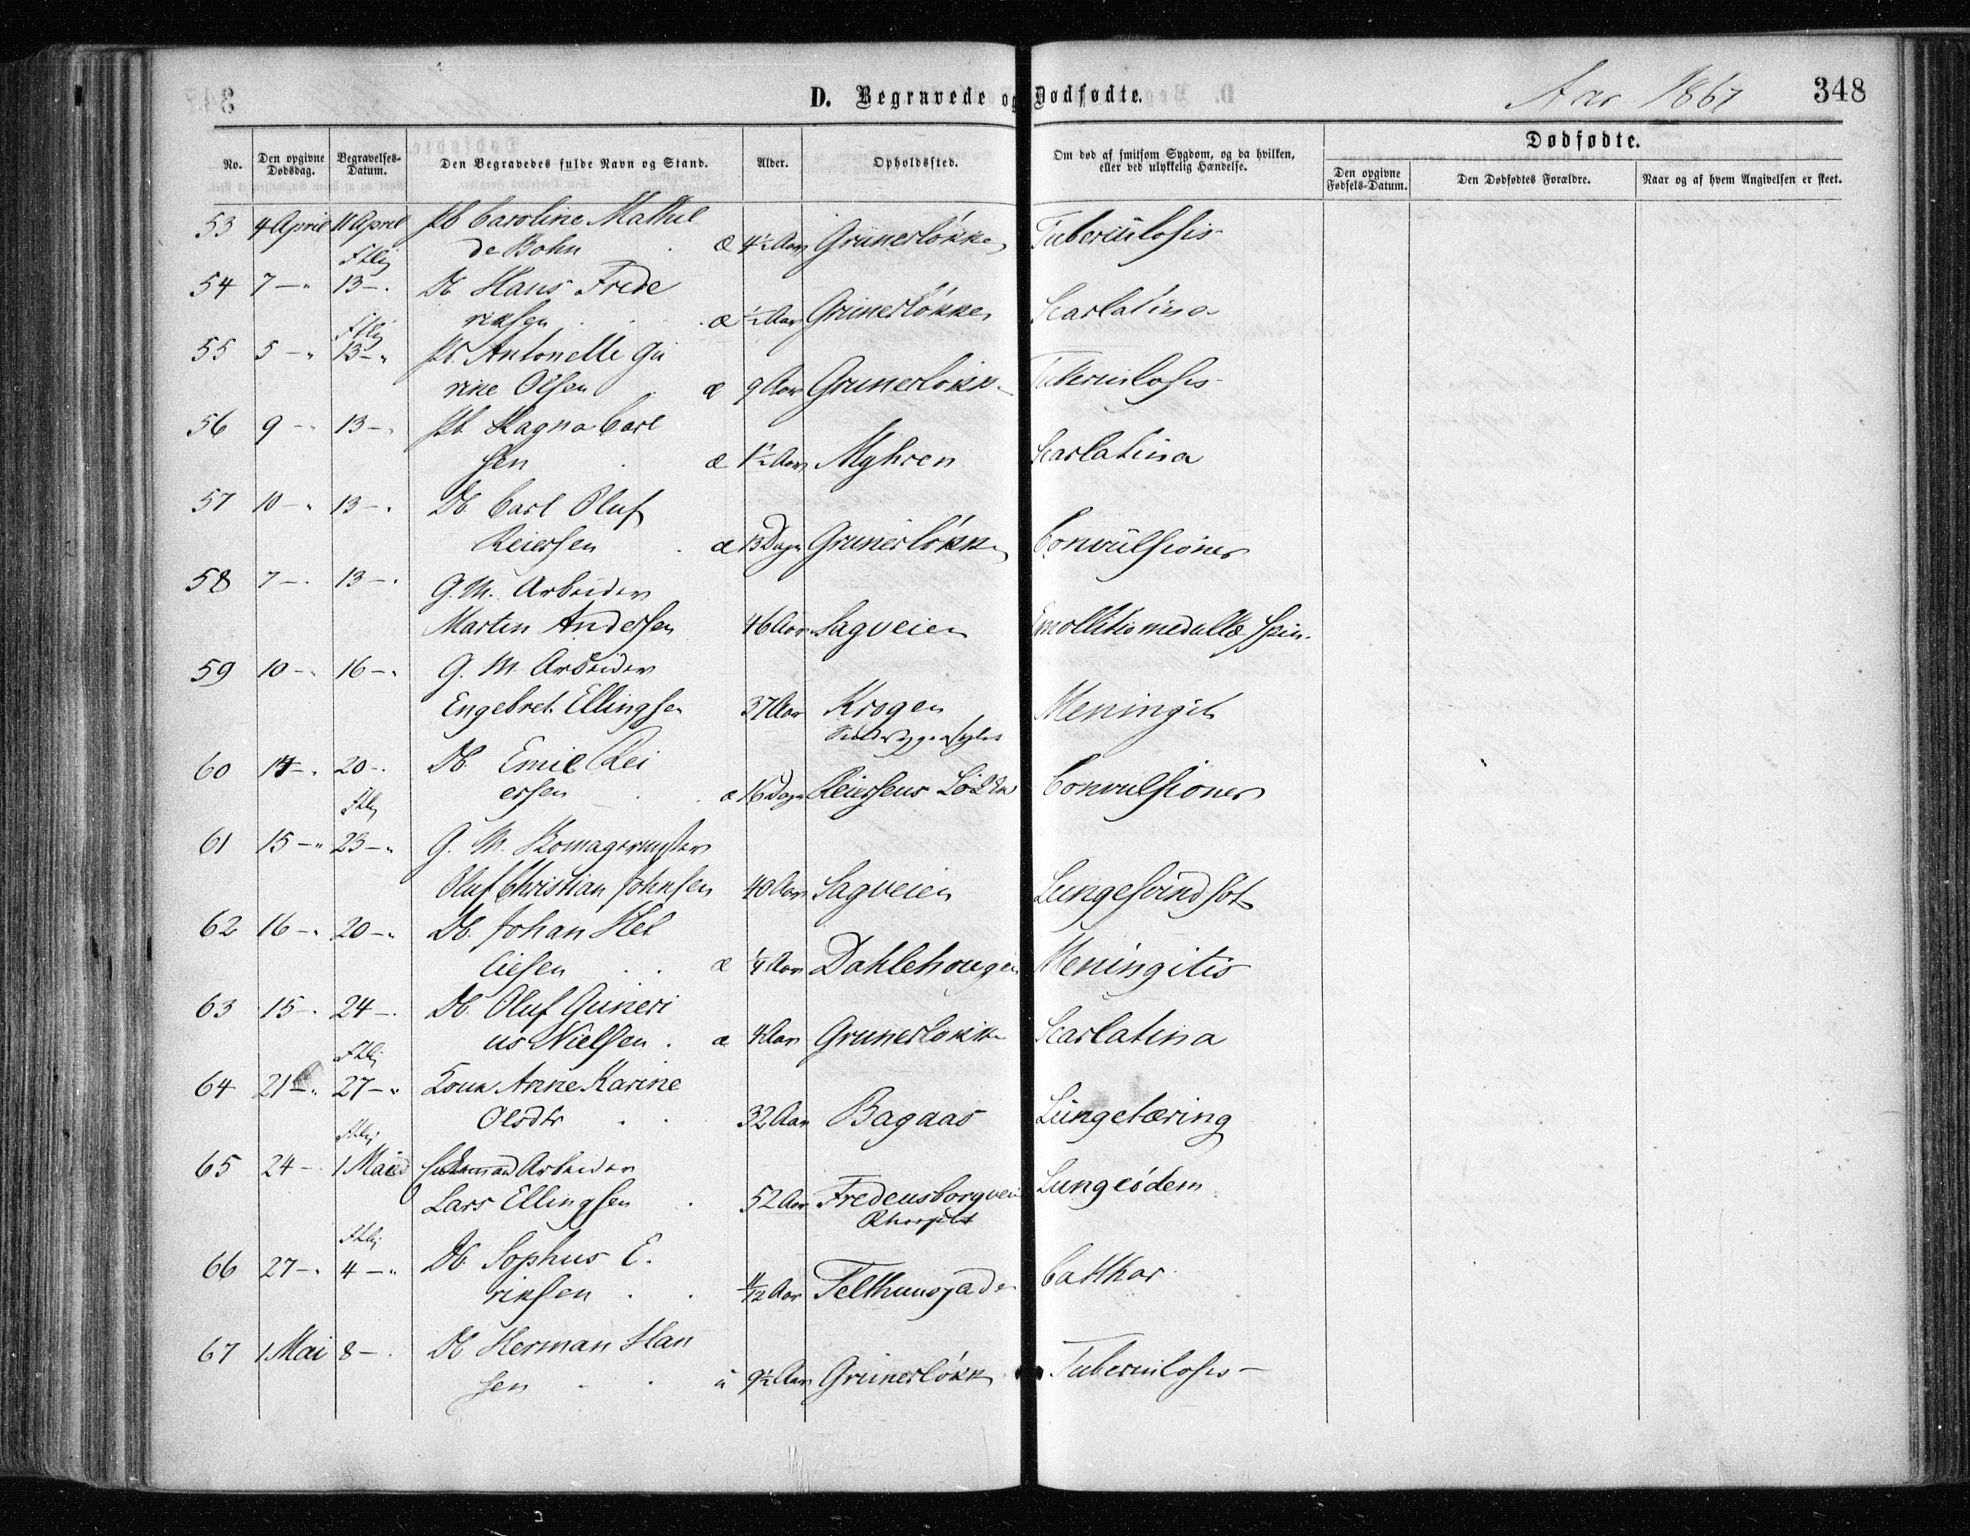 D. Begravede og Dødfødte.
Aar 1867
348
No.
Den opgivne Dødsdag.
Begravelses-Datum.
Den Begravedes fulde Navn og Stand.
Alder.
Opholdssted.
Om død af smitsom Sygdom, og da hvilken, eller ved ulykkelig Hændelse.
Dødfødte.
Den opgivne Fødsels-Datum.
Den Dødfødtes Forældre.
Naar og af hvem Angivelsen er skeet.
53 4 April 11 April Pb Caroline Mathil
de Bohn æ 4½ Aar Grünerløkken Tuberkulosis
54 7 — " 13 — . Db Hans Frede
riksen . æ ½ Aar Grünerløkken Scarlatina
55 5 — " 13 — " Pb. Antonette Gu
rine Olsen æ 9 Aar Grunerløkk Tuberculosis
56 9 — " 13 — " Pb. Hagna Carl
sen æ 1½ Aar Myhren Scarlatina
57 10 — " 13 — . Db. Carl Oluf
Reiersen . æ 13 Dage Grünerløkk Convulsioner
58 7 — . 13 — . G. M. Arbeider
Martin Andersen 46 Aar Sagveien Emollitio medullæ spin.
59 10 — " 16 — " G. M. Arbeider
Engebret Ellingsen 37 Aar Krogen Meningit
60 14 — . 20 — . Db. Emil Rei
ersen . . æ 16 Dage Reiersens Løkke Convulsioner
61 15 — " 23 — " G. M. Skomagermester
Oluf Christian Johnsen 40 Aar Sagveien Lungesvindsot
62 16 — " 20 — " Db. Johan Hel
liesen . . æ ¼ Aar Dahlehougen Meningitis
63 15 — . 24 — . Db. Oluf Guneri
us Nielsen . æ 4 Aar Grunerløkke Scarlatina
64 21 — " 27 — " Kone Anne Karine
Olsdtr . . 32 Aar Bagaas Lungetæring
65 24 — 1 Mai Arbeider
Lars Ellingsen . 52 Aar Fredensborgvei Lungeödem
66 27 — . 4 — " Db. Sophus E.
riksen . . 11/12 Aar Telthusgade Catthar
67 1 Mai 8 — . Db Herman Han
sen . . æ 9½ Aar Grünerløkk Tuberculosis —